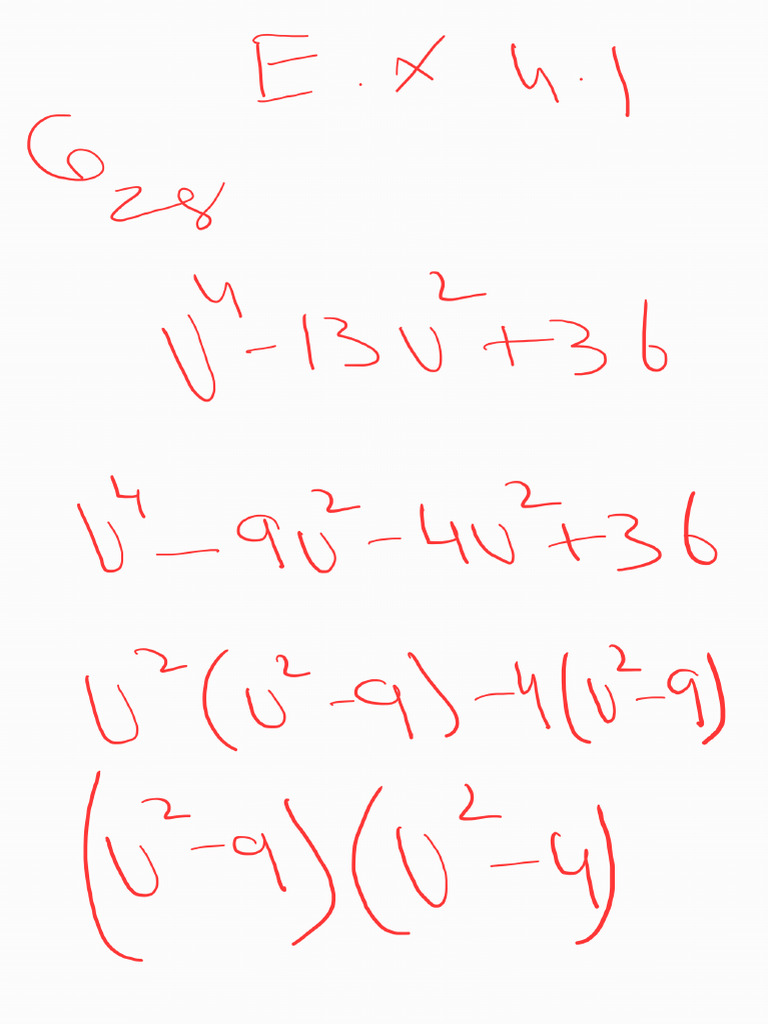 E.x 4.1
Q 28
v⁴-13v²+36
v⁴-9v²-4v²+36
v²(v²-9)-4(v²-9)
(v²-9)(v²-4)